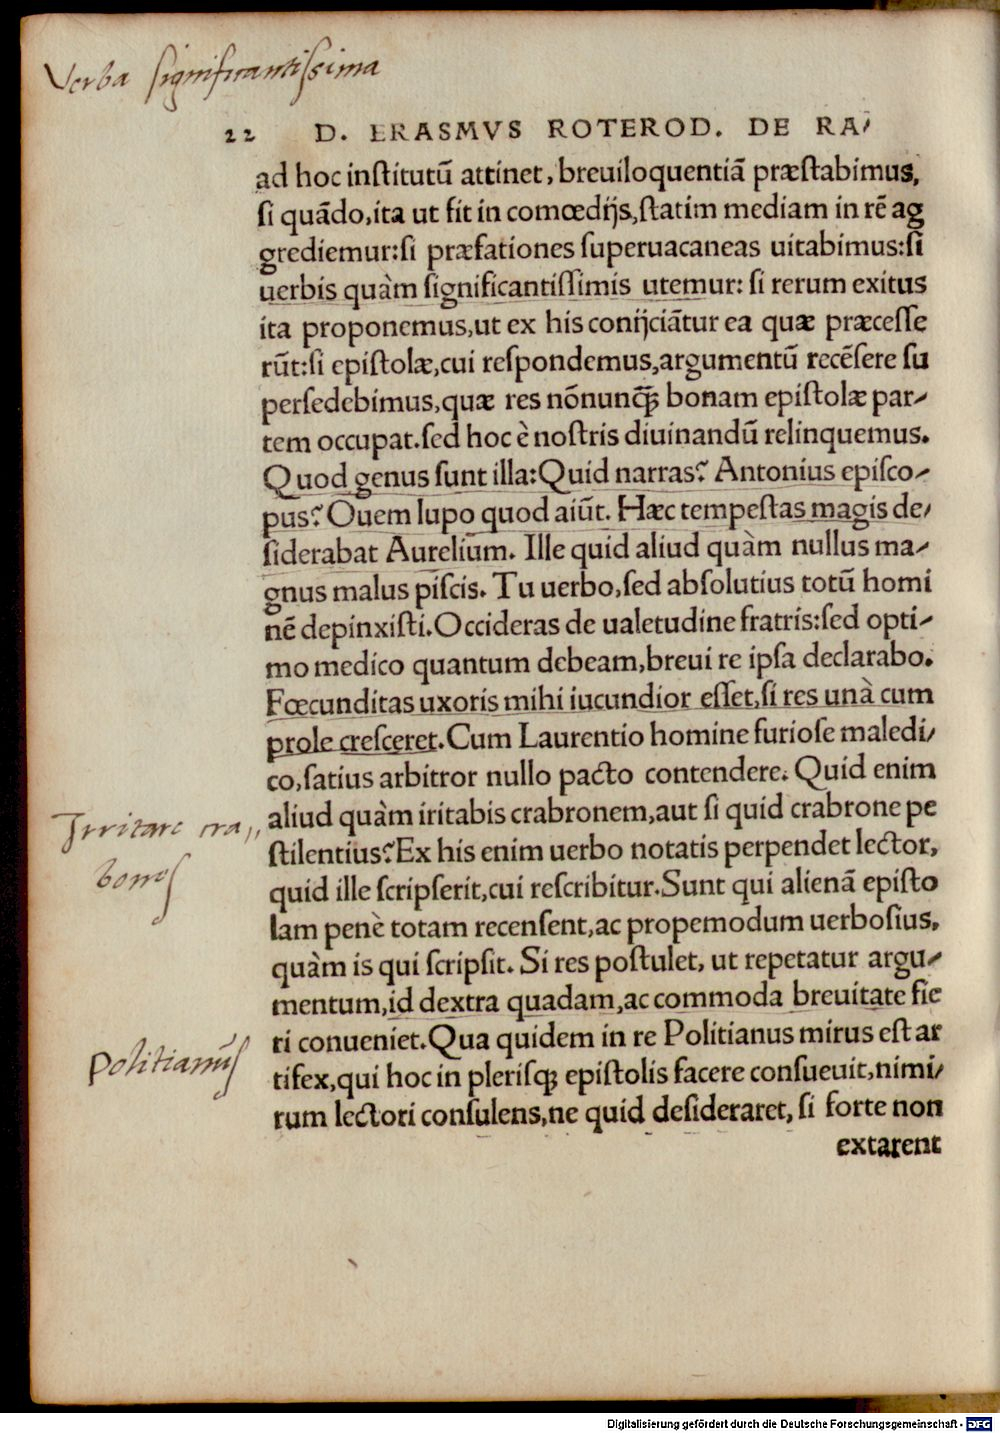 Verba significantissima
22 D. ERASMVS ROTEROD. DE RA⸗
ad hoc institutū attinet, breuiloquentiā præstabimus,
si quãdo, ita ut fit in comœdijs, statim mediam in rē ag
grediemur: si præfationes superuacaneas uitabimus: si
uerbis quàm significantissimis utemur: si rerum exitus
ita proponemus, ut ex his conijciãtur ea quæ præcesse
rūt: si epistolæ, cui respondemus, argumentū recēsere su
persedebimus, quæ res nōnunꝙ̃ bonam epistolæ par⸗
tem occupat. sed hoc è nostris diuinandū relinquemus.
Quod genus sunt illa: Quid narras? Antonius episco⸗
pus? Ouem lupo quod aiūt. Hæc tempestas magis de⸗
siderabat Aurelium. Ille quid aliud quàm nullus ma⸗
gnus malus piscis. Tu uerbo, sed absolutius totū homi
nē depinxisti. Occideras de ualetudine fratris: sed opti⸗
mo medico quantum debeam, breui re ipsa declarabo.
Fœcunditas uxoris mihi iucundior esset, si res unà cum
prole cresceret. Cum Laurentio homine furiose maledi⸗
co, satius arbitror nullo pacto contendere. Quid enim
aliud quàm iritabis crabronem, aut si quid crabrone pe
Irritare cra⸗
bones
stilentius? Ex his enim uerbo notatis perpendet lector,
quid ille scripserit, cui rescribitur. Sunt qui alienā episto
lam penè totam recensent, ac propemodum uerbosius,
quàm is qui scripsit. Si res postulet, ut repetatur argu⸗
mentum, id dextra quadam, ac commoda breuitate fie
ri conueniet. Qua quidem in re Politianus mirus est ar
Politianus
tifex, qui hoc in plerisqꝫ epistolis facere consueuit, nimi⸗
rum lectori consulens, ne quid desideraret, si forte non
extarent
Digitalisierung gefördert durch die Deutsche Forschungsgemeinschaft - DFG